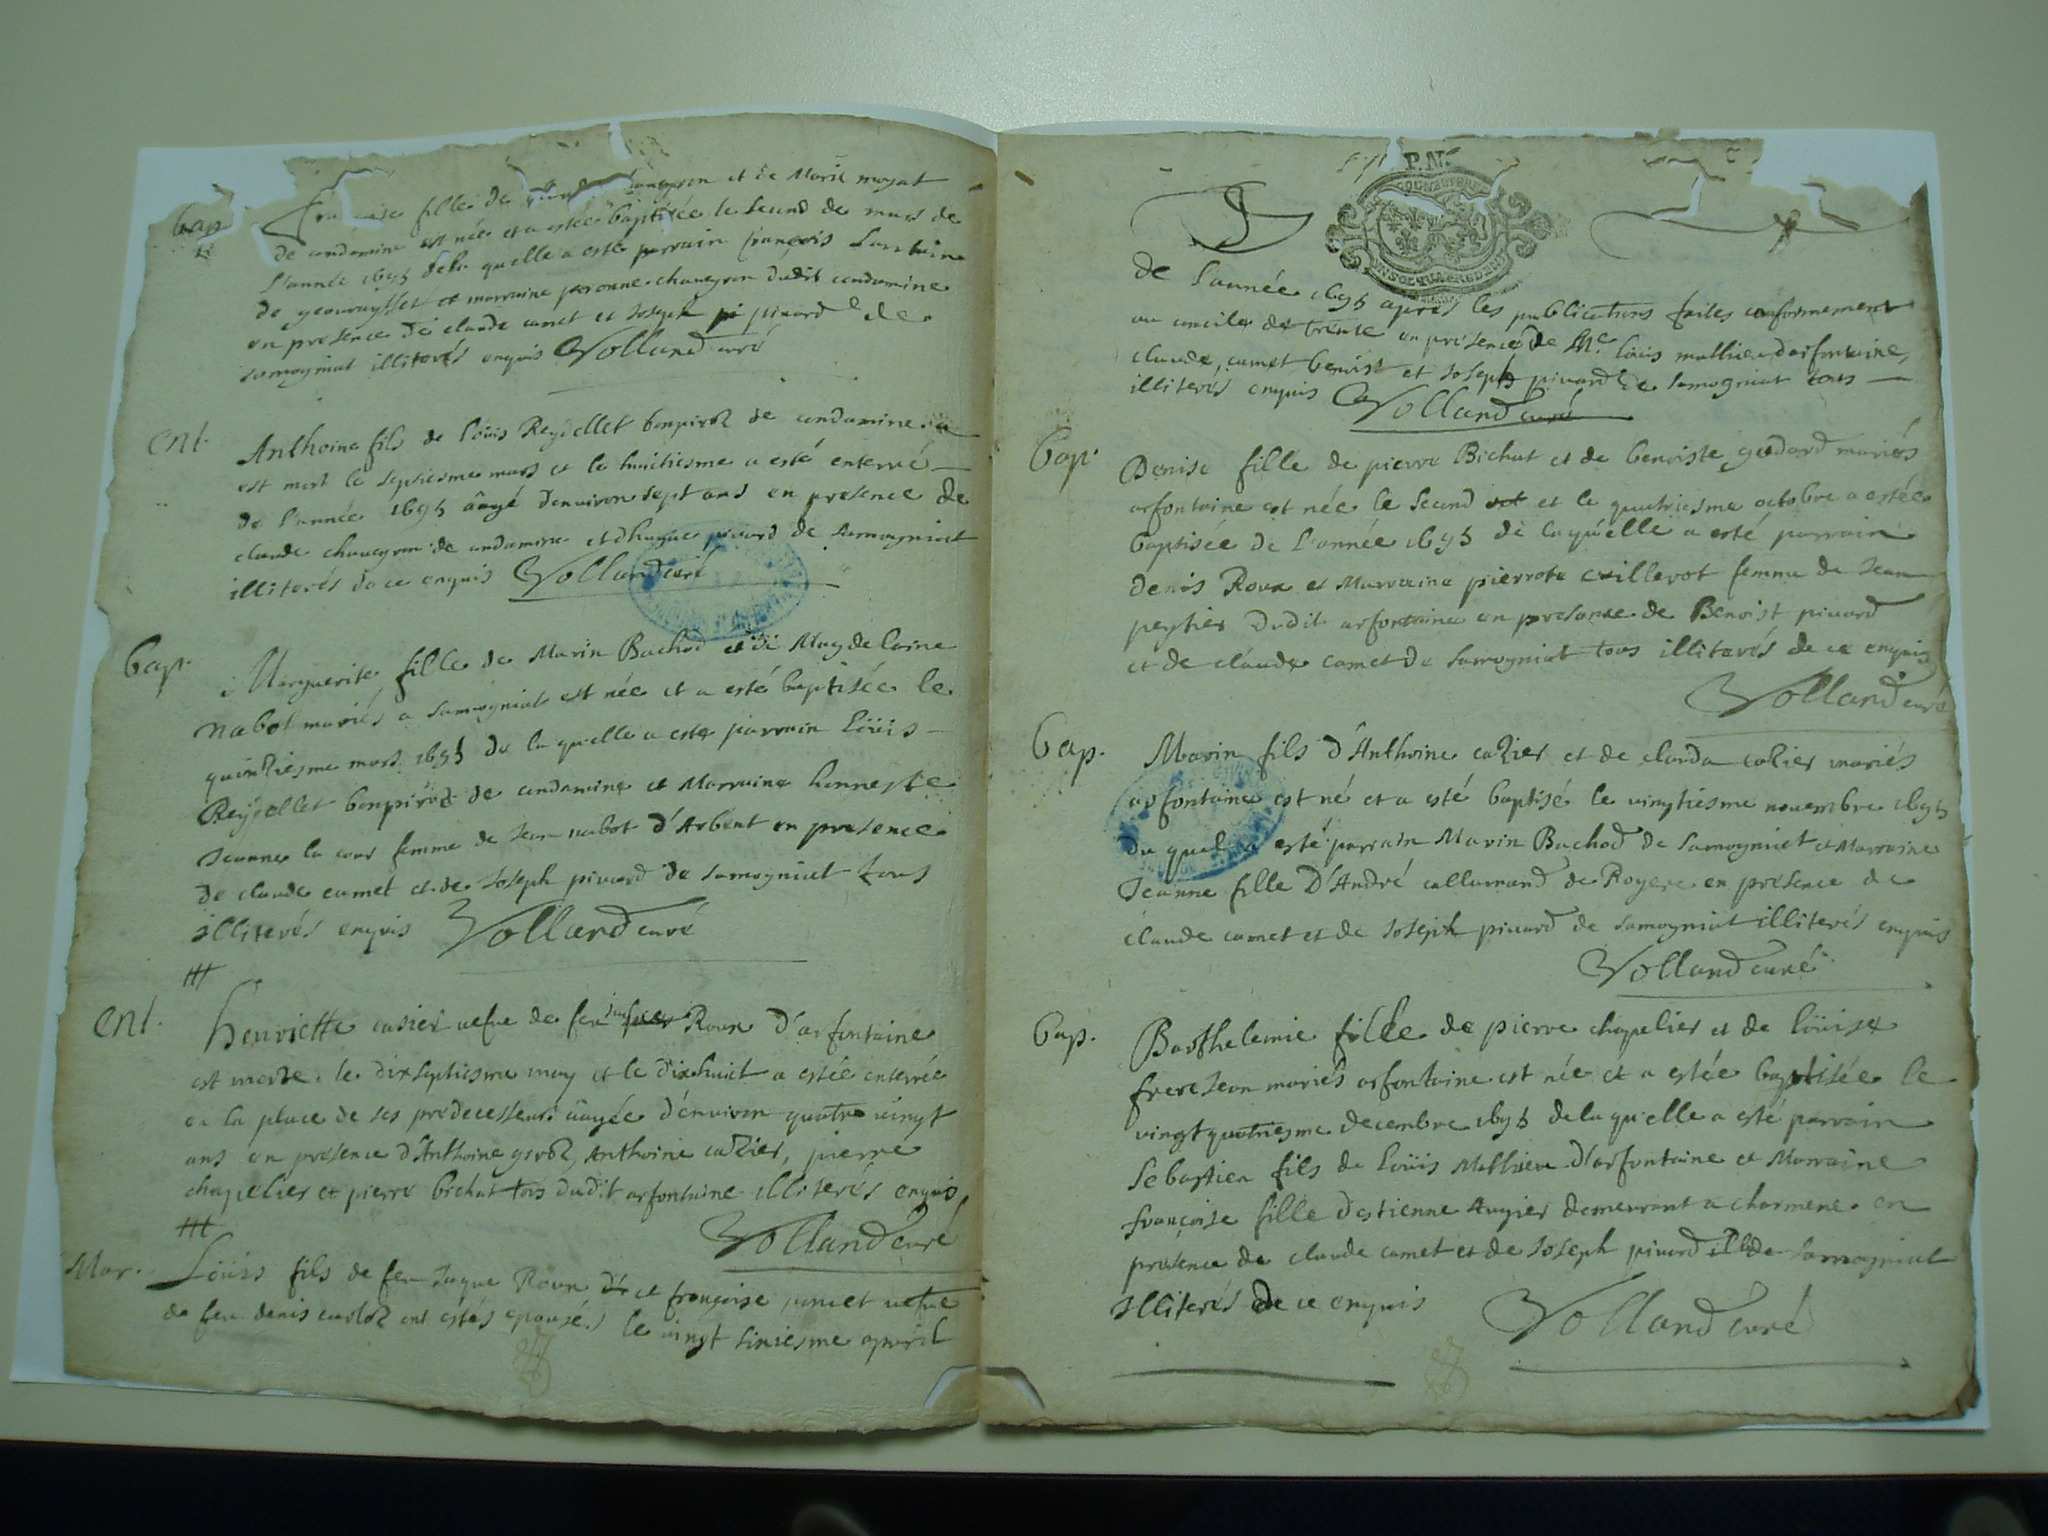 Bap
fille de et de Marie moyat
de condamine est née et a estée baptisée le second de mars de
l'année 1695 de la quelle a esté parrain françois
de et marraine chaneyron dudit condamine
en presence de claude camet et Joseph pi picard de
samogniat illiterés enquis Volland curé
ent.
Anthoine fils de loüis Reydellet bonpirod de condamine
est mort le septiesme mars et le huictiesme a esté enterré
de l'année 1695 âagé denviron sept ans en presence de
claude chaneyron de condamine et d'hugue picard de samogniat
illiterés de ce enquis Volland curé
Bap.
Marguerite fille de Marin Bachod et de Magdelaine
nabot mariés a samogniat est née et a esté baptisée le
quinziesme mars 1695 de la quelle a esté parrain loüis
Reydellet bonpirod de condamine et Marraine honneste
Jeanne la cour femme de Jean nabot d'Arbent en presence
de claude camet et de Joseph picard de samogniat tous
illiterés enquis Volland curé
ent.
henriette cazier vefve de feu Roux d'arfontaine
est morte le dixseptiesme may et le dixhuict a estée enterrée
en la place de ses predecesseurs âagée d'environ quatre vingt
ans en présence d'Anthoine Anthoine cazier, pierre
chapelier et pierre bichat tous dudit arfontaine illiterés enquis
Volland curé
Mar.
Loüis fils de feu Jaque Roux et françoise vefve
de feu denis ont estés epousés le vingt sixiesme apvril
P. M.
de l'année 1695 après les publications faites conformement
au concile de trente en presence de Me. loüis mathieu d'arfontaine,
claude camet benoist et Joseph picard de samogniat tous
illiterés enquis Volland curé
Bap.
Denise fille de pierre Bichat et de benoiste godard mariés
arfontaine est née le second et le quatriesme octobre a estée
baptisée de l'année 1695 de laquelle a esté parrain
denis Roux et Marraine pierrote femme de Jean
peytier dudit arfontaine en presance de Benoist picard
et de claude camet de samogniat tous illiterés de ce enquis
Volland curé
Bap.
Marin fils d'Anthoine cazier et de clauda cazier mariés
arfontaine est né et a esté baptisé le vingtiesme novembre 1695
du quel a esté parrain Marin Bachod de samogniat et Marraine
Jeanne fille d'André callamand de Royere en présence de
claude camet et de Joseph picard de samogniat illiterés enquis
Volland curé
Bap.
Barthelemie fille de pierre chapelier et de loüise
frerejean mariés arfontaine est née et a estée baptisée le
vingt quatriesme decembre 1695 de la quelle a esté parrain
Sebastien fils de loüis Mathieu d'arfontaine et Marraine
françoise fille d'estienne Augier demeurant a charmene en
presence de claude camet et de Joseph picard de samogniat
illiterés de ce enquis Volland curé